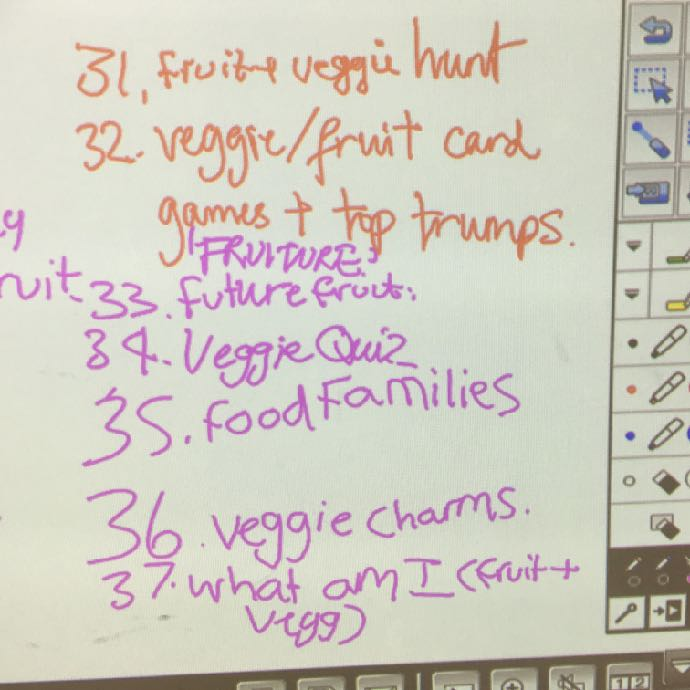 31. fruit + veggie hunt
32. veggie/fruit card
games + top trumps.
"FRUITURE"
33. future fruit.
34. Veggie Quiz
35. food Families
36. veggie charms.
37. what am I (fruit +
vegg)